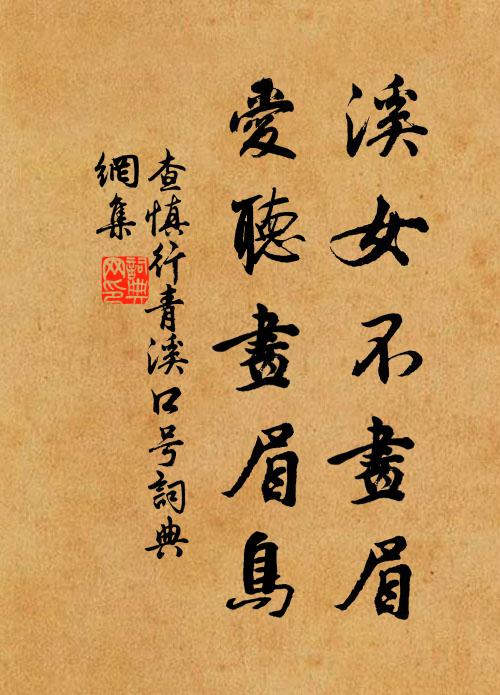 溪女不畫眉
愛聽畫眉鳥
查慎行青溪口号詞典
網集
詞典网印